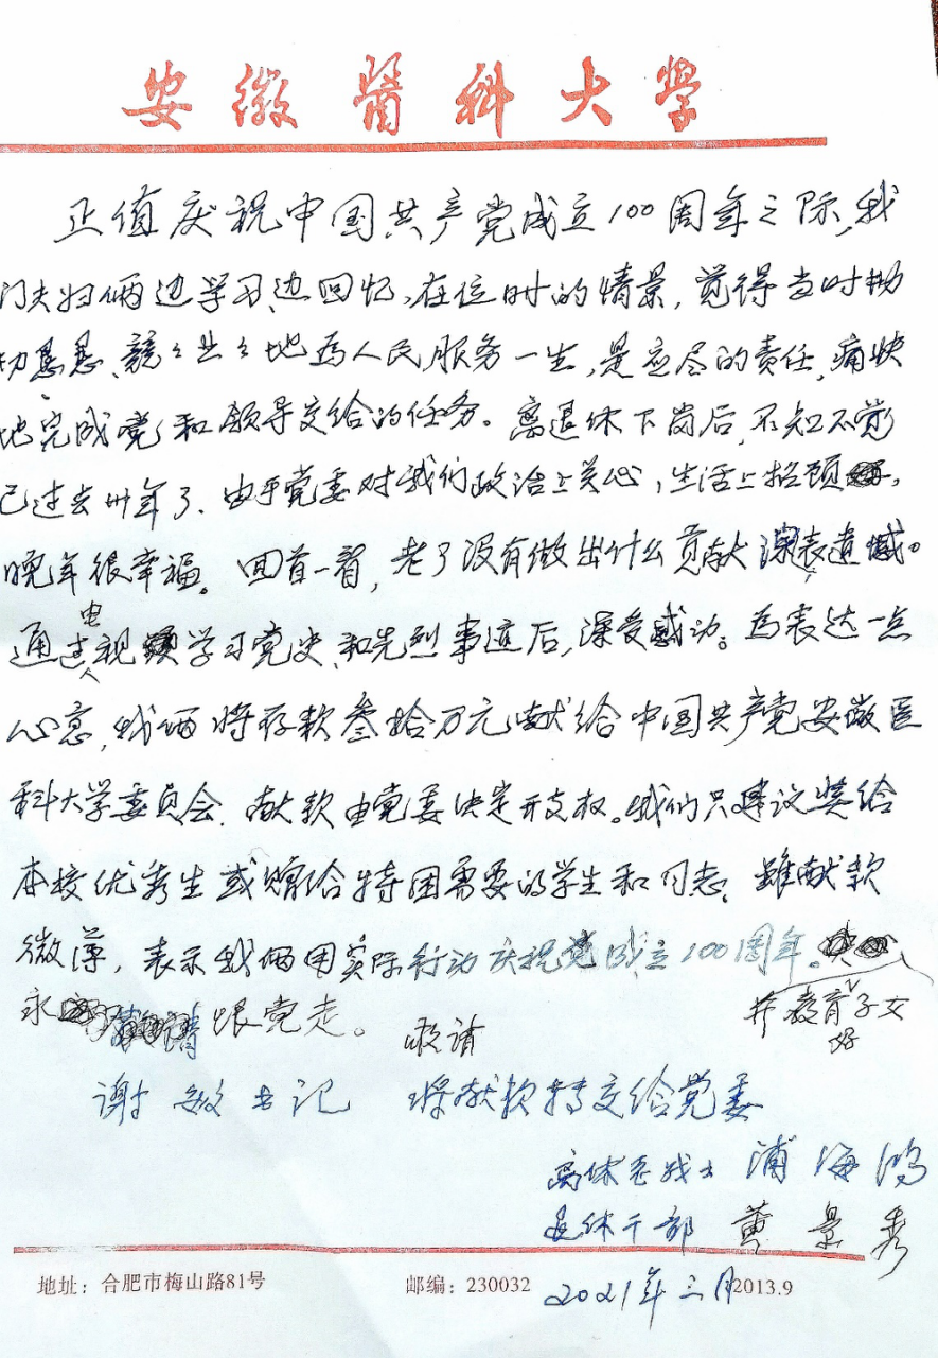 安徽醫科大學
正值庆祝中国共产党成立100周年之际,我
门夫妇俩边学习边回忆,在位时的情景,觉得当时勤
恳恳、兢々业々地为人民服务一生,是应尽的责任,痛快
地完成党和领导交给的任务。离退休下岗后,不知不觉
已过去卅年了、由于党委对我们政治上关心,生活上招顾,
晚年很幸福。回首一看,老了没有做出什么贡献深表遗憾。
通过电视学习党史和先烈事迹后,深受感动。为表达一点
心意,我俩将存款叁拾万元献给中国共产党安徽医
科大学委员会.献款由党委决定开支权。我们只建议奖给
本校优秀生或赠给特困需要的学生和同志,虽献款
微薄,表示我俩用实际行动庆祝党成立100周年。
并教育好子女
永跟党走。
敬请
谢 书记 将献款转交给党委
离休老战士 浦海鸿
退休干部 黄景秀
地址:合肥市梅山路81号 邮编:230032 2021年三月 2013.9